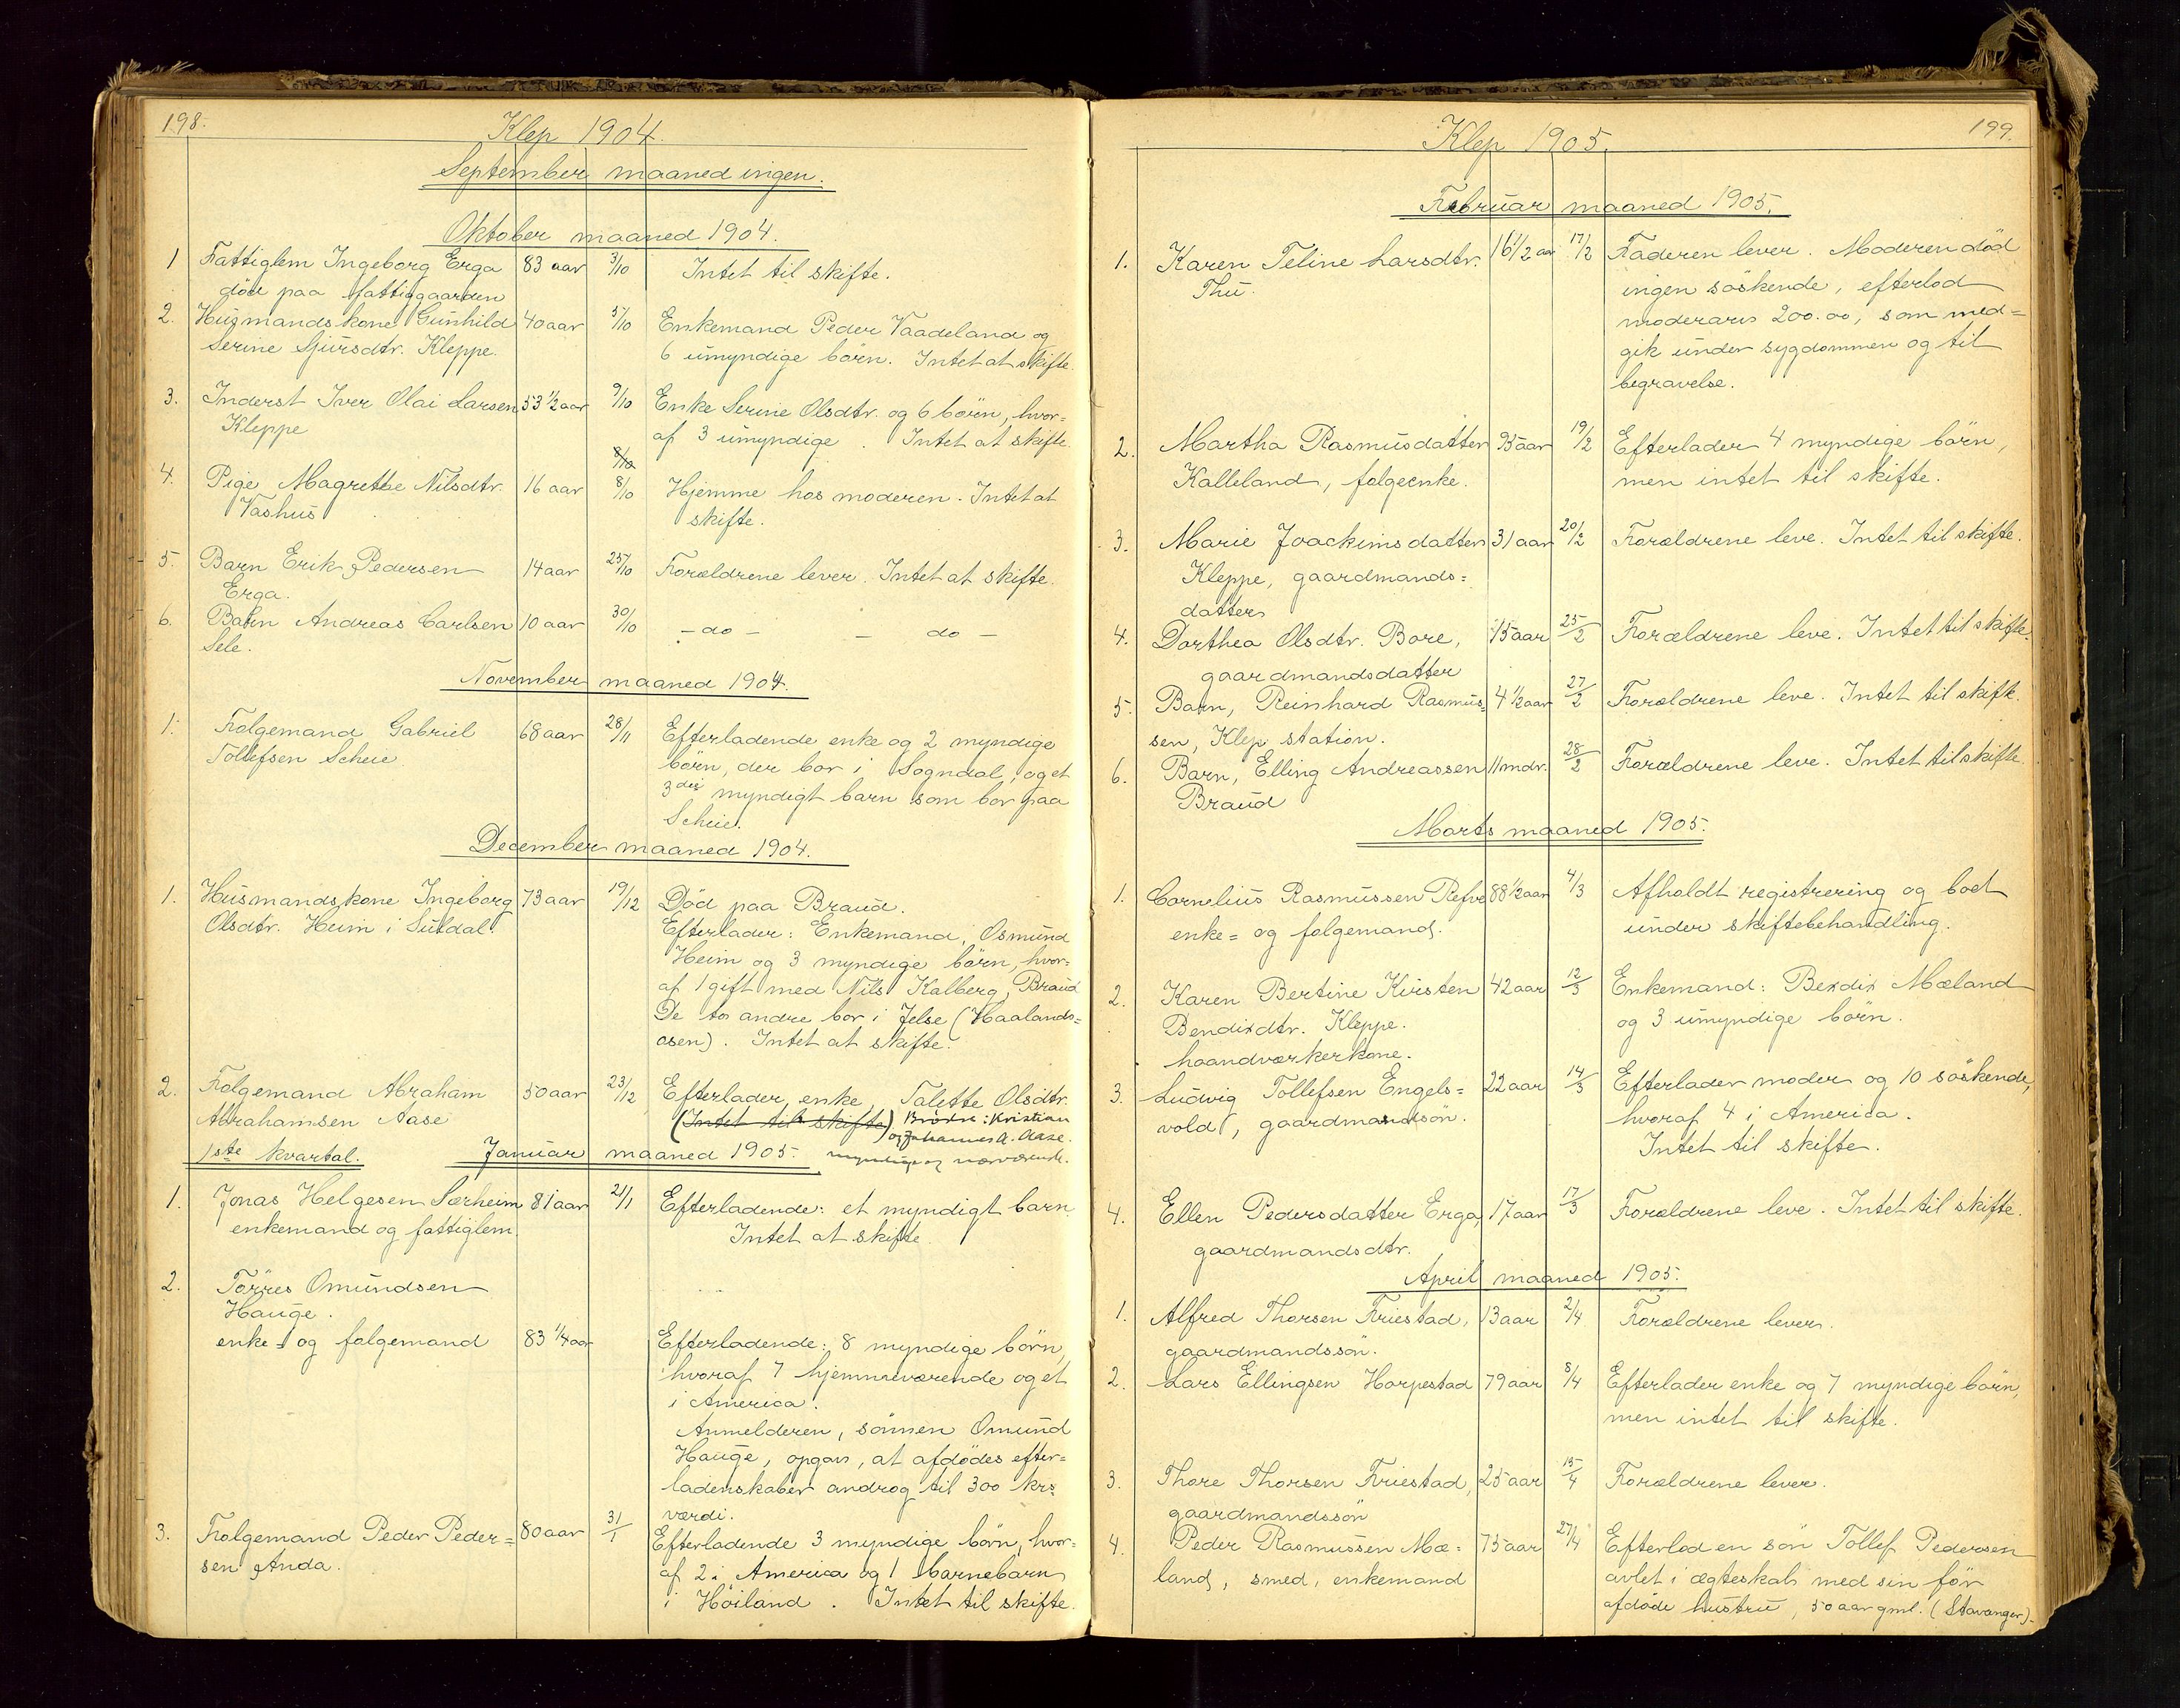 198.
Klep 1904.
September maaned ingen.
Oktober maaned 1904.
1 Fattiglem Ingeborg Erga 83 aar 3/10 Intet til skifte.
död paa fattiggaarden
2. Husmandskone Gunhild 40 aar 5/10 Enkemand Peder Vaadeland og
Serine Sjursdtr. Kleppe. 6 umyndige börn. Intet at skifte.
3. Inderst Iver Olai Larsen 53 1/2 aar 9/10 Enke Serine Olsdtr. og 6 börn, hvor=
Kleppe af 3 umyndige. Intet at skifte.
8/10
4. Pige Magrethe Nilsdtr. 16 aar 8/10 Hjemme hos moderen. Intet at
Vashus skifte.
5. Barn Erik Pedersen 14 aar 25/10 Forældrene lever. Intet at skifte.
Erga.
6. Barn Andreas Carlsen 10 aar 30/10 – do – – do –
Sele.
November maaned 1904.
1. Folgemand Gabriel 68 aar 28/11 Efterladende enke og 2 myndige
Tollefsen Scheie börn, der bor i Sogndal, og et
3die myndigt barn som bor paa
Scheie.
December maaned 1904.
1. Husmandskone Ingeborg 73 aar 19/12 Död paa Braud.
Olsdtr. Heim i Suldal. Efterlader: Enkemand, Osmund
Heim og 3 myndige börn, hvor=
af 1 gift med Nils Kalberg, Braud
De to andre bor i Jelse (Haalands=
osen). Intet at skifte.
2. Folgemand Abraham 50 aar 23/12 Efterlader enke, Talette Olsdtr.
Abrahamsen Aase (Intet til skifte) Brödre: Kristian
og Johannes A. Aase.
myndige og nærværende.
1ste kvartal. Januar maaned 1905.
1. Jonas Helgesen Særheim 81 aar 21/1 Efterladende: et myndigt barn.
enkemand og fattiglem. Intet at skifte.
2. Törres Omundsen
Hauge.
enke= og folgemand 83 1/4 aar Efterladende: 8 myndige börn,
hvoraf 7 hjemmeværende og et
i America.
Anmelderen, sönnen Omund
Hauge, opgav, at afdödes efter=
ladenskaber androg til 300 krs
værdi.
3. Folgemand Peder Peder= 80 aar 31/1 Efterladende 3 myndige börn, hvor=
sen Anda. af 2 i America og 1 barnebarn
i Höiland. Intet til skifte.
199.
Klep 1905.
Februar maaned 1905.
1. Karen Teline Larsdtr. 16 1/2 aar 17/2 Faderen lever. Moderen död
Thu. ingen söskende, efterlod
moderarv 200.00, som med=
gik under sygdommen og til
begravelse.
2. Martha Rasmusdatter 93 aar 19/2 Efterlader 4 myndige börn,
Kalleland, folgeenke. men intet til skifte.
3. Marie Joackimsdatter 31 aar 20/2 Forældrene leve. Intet til skifte.
Kleppe, gaardmands=
datter
4. Dorthea Olsdtr. Bore, 15 aar 25/2 Forældrene leve. Intet til skifte.
gaardmandsdatter
5. Barn, Reinhard Rasmus= 4 1/2 aar 27/2 Forældrene leve. Intet til skifte.
sen, Klep station.
6. Barn, Elling Andreassen 11 mdr. 28/2 Forældrene leve. Intet til skifte.
Braud
Marts maaned 1905.
1. Cornelius Rasmussen Refve 88 1/2 aar 4/3 Afholdt registrering og boet
enke= og folgemand. under skiftebehandling.
2. Karen Bertine Kirsten 42 aar 12/3 Enkemand: Bendix Mæland
Bendixdtr. Kleppe. og 3 umyndige börn.
haandværkerkone.
3. Ludvig Tollefsen Engels= 22 aar 14/3 Efterlader moder og 10 söskende,
vold, gaardmandsön. hvoraf 4 i America.
Intet til skifte.
4. Ellen Pedersdatter Erga, 17 aar 17/3 Forældrene leve. Intet til skifte.
gaardmandsdtr.
April maaned 1905.
1. Alfred Thorsen Friestad, 13 aar 2/4 Forældrene lever.
gaardmandssön.
2. Lars Ellingsen Horpestad 79 aar 8/4 Efterlader enke og 7 myndige börn,
men intet til skifte.
3. Thore Thorsen Friestad, 25 aar 15/4 Forældrene lever.
gaardmandssön
4. Peder Rasmussen Mæ= 75 aar 27/4 Efterlod en sön Tollef Pedersen
land, smed, enkemand avlet i ægteskab med sin för
afdöde hustru, 50 aar gml. (Stavanger).